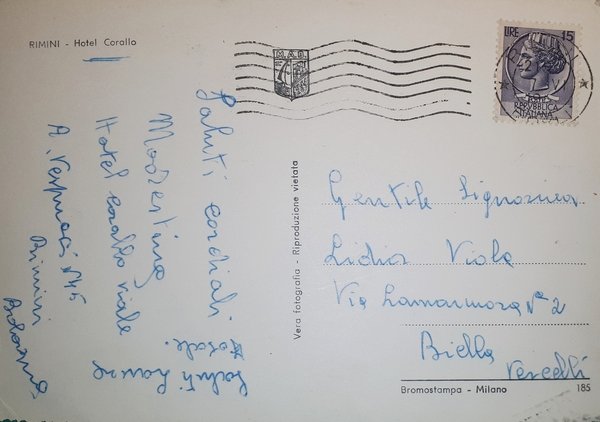 RIMINI - Hotel Corallo
LIRE 15
REPUBBLICA
ITALIANA
Saluti cordiali
Hotel corallo viale
A. Vespucci N 45
Rimini
Saluti
Vera fotografia - Riproduzione vietata
Gentile Signorina
Lidia Viola
Via Lamarmora N° 2
Biella
Vercelli
Bromostampa - Milano
185